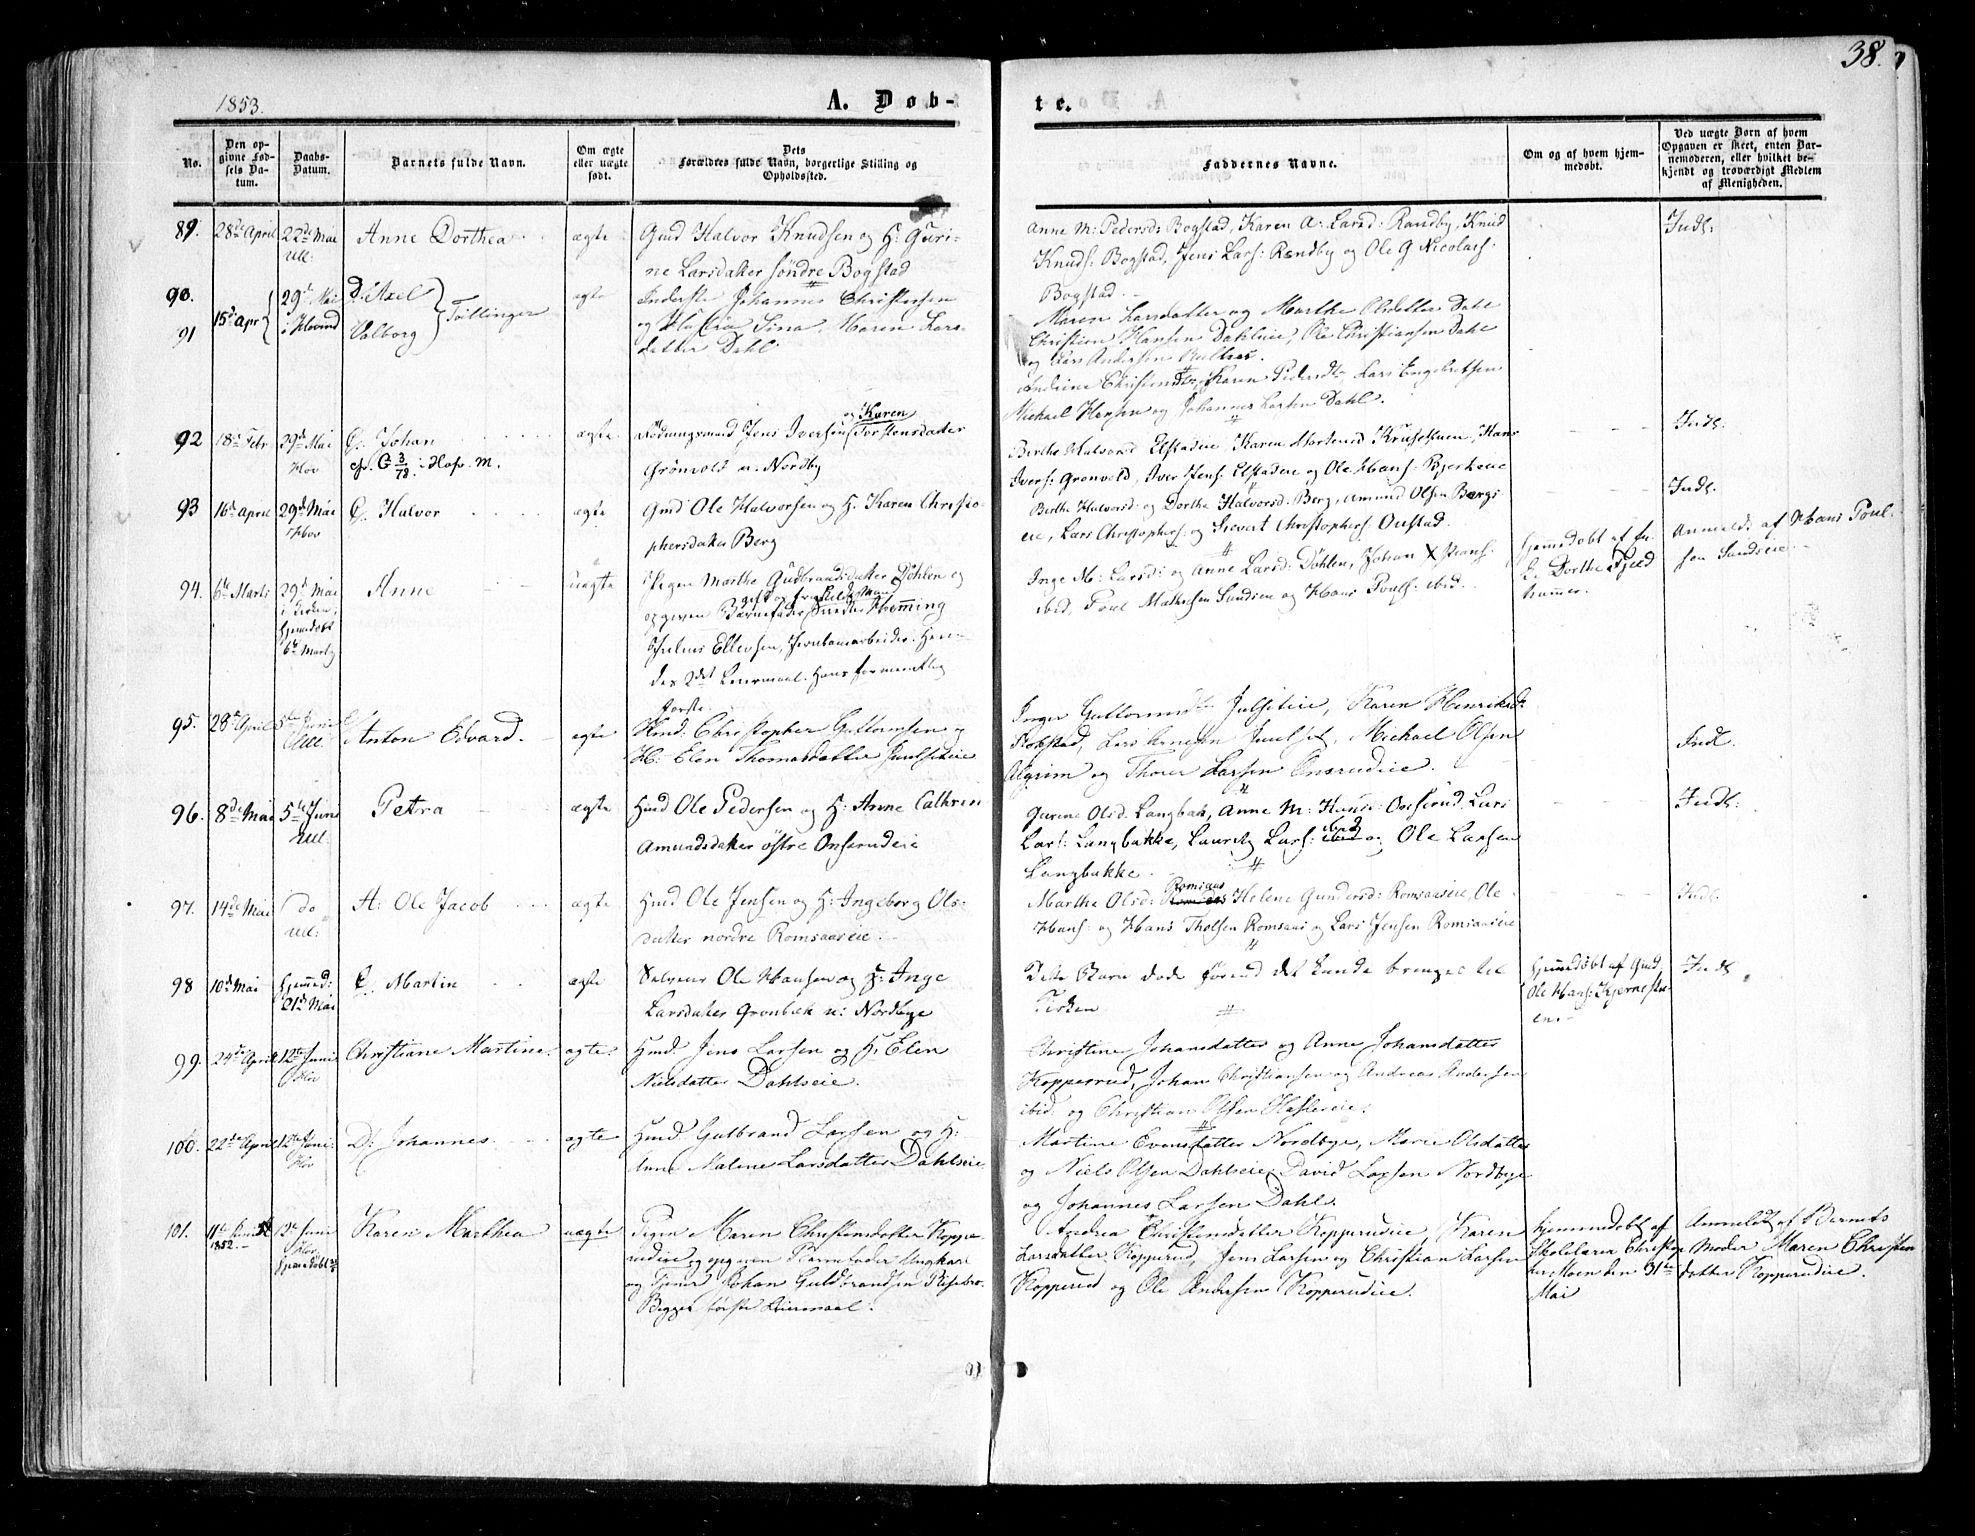 38.
1853.
A. Døb-
te.
No.
Den opgivne Fødsels Datum.
Daabs-Datum.
Barnets fulde Navn.
Om ægte eller uægte født.
Dets Forældres fulde Navn, borgerlige Stilling og Opholdssted.
Faddernes Navne.
Om og af hvem hjemmedøbt.
Ved uægte Børn af hvem Opgaven er skeet, enten Barnemoderen, eller hvilket bekjendt og troværdigt Medlem af Menigheden.
89. 28de April 22de Mai Ull: Anne Dorthea ægte
Gmd Halvor Knudsen og H: Guri-
ne Larsdatter søndre Bogstad
Anne M: Pedersd: Bogstad, Karen A: Larsd: Randby, Knud
Knuds: Bogstad, Jens Lars: Randby og Ole G Nicolais:
Bogstad
Indl:
90. 91 15de Apr 29de Mai i Hovind D: Axel Valborg Tvillinger ægte
Inderste Johannes Christensen
og Sina Maren Lars-
datter Dahl
Maren Larsdatter og Marthe Olsdatter Dahl
Christian Hansen Dahleie, Ole Christiansen Dahl
og Lars Andersen
Andrine Karen Pedersdtr Lars Engebretsen
Michael Hansen og Johannes Larsen Dahl.
92 18de Febr 29de Mai Hov Johan ægte
Jens Iversen og Karen Torstensdatter
Grønvold u. Nordby
Berthe Halvorsd Elstadeie, Karen Mortensd Hans
Ivers: Grønvold, Iver Jens: Elstadeie og Ole Hans: Bjerkeeie
Indl.
93 16de April 29de Mai Hov Halvor ægte
Gmd Ole Halvorsen og H. Karen Christo-
phersdatter Berg
Berthe Halvorsd: og Dorthe Halvorsd: Berg, Amund Olsen Bergs
eie, Lars Christophers: og Sievert Christophers: Onstad.
Indl.
94. 6te Marts 29de Mai i Kirken, hjemdøbt 6te Marts Anne uægte
Pigen Marthe Gudbrandsdatter Døhlen og
opgiven Barnefader gift og fraskilt Mand Smed Flemming
Julius Ellevsen, Jernbanearbeider. Hen-
des 2det Leiermaal. Hans formentlig
første.
Inge M: Larsd: og Anne Larsd: Døhlen, Johan Hans:
ibid, Poul Mathisen Sandeie og Hans Pouls: ibid.
hjemmedøbt af
Dorthe Fjeld
hammer.
Anmeldt af Hans Poul-
sen Sandeie.
95. 28de April 5te Juni Ull. Anton Edvard. ægte
Hmd: Christopher Guttormsen og
H: Elen Thomasdatter Juulseteie
Inger Guttormsdtr Julseteie, Karen Henriksd:
Robstad, Lars Arnesen Juulset, Michael Olsen
Algrim og Thorer Larsen Onsrudeie.
Indl.
96. 8de Mai 5te Juni Ull. Petra ægte
Hmd Ole Pedersen og H: Anne Cathrin
Amundsdatter østre Onsrudeie
Gurine Olsd. Langbak, Anne M: Hansd: Onsrud, Lars
Lars: Langbakke, Laurits Lars: ibid og Ole Larsen
Langbakke.
Indl:
97. 14de Mai do Ull: A: Ole Jacob ægte
Hmd Ole Jensen og H: Ingeborg Ols-
datter nordre Romsaaseie.
Marthe Olsd: Romsaas Helene Gundersd: Romsaaseie, Ole
Hans: og Hans Tholsen Romsaas og Lars Jensen Romsaaseie
Indl.
98 10de Mai hjemmed: 21de Mai Martin ægte
Selveier Ole Hansen og H: Inge
Larsdatter Grønbæk u: Nordbye
Dette Barn døde førend det kunde bringes til
Kirken
hjemmedøbt af Gmd,
Ole Hans: Kjernestu-
en.
Indl
99. 24de April 12te Juni Hov Christiane Martine. ægte.
Hmd. Jens Larsen og H: Elen
Nielsdatter Dahlseie.
Christine Johansdatter og Anne Johansdatter
Kopperud, Johan Christiansen og Andreas Andersen
ibid: og Christian Olsen Hasleeie.
100. 22de April 12te Juni Hov D: Johannes. ægte
Hmd. Gulbrand Larsen og H:
Anne Malene Larsdatter Dahlseie
Martine Evensdatter Nordbye, Marie Olsdatter
og Niels Olsen Dahlseie, David Larsen Nordbye
og Johannes Larsen Dahl.
101. 11te Juni 1852. 12te Juni Hov hjemmedøbt Karen Marthea uægte
Pigen Maren Christensdatter Koppe-
rudeie og opgiven Barnefader Ungkarl
og Tjener Johan Guldbrandsen Risebro.
Begges første Leiermaal.
Andrea Christensdatter Kopperudeie, Karen
Larsdatter Kopperud, Jens Larsen og Christian Larsen
Kopperud og Ole Andersen Kopperudeie.
hjemmedøbt af
Skolelærer Christop
her Moen den 31te
Mai
Anmeldt af Barnets
Moder Maren Christen
datter Kopperudeie.